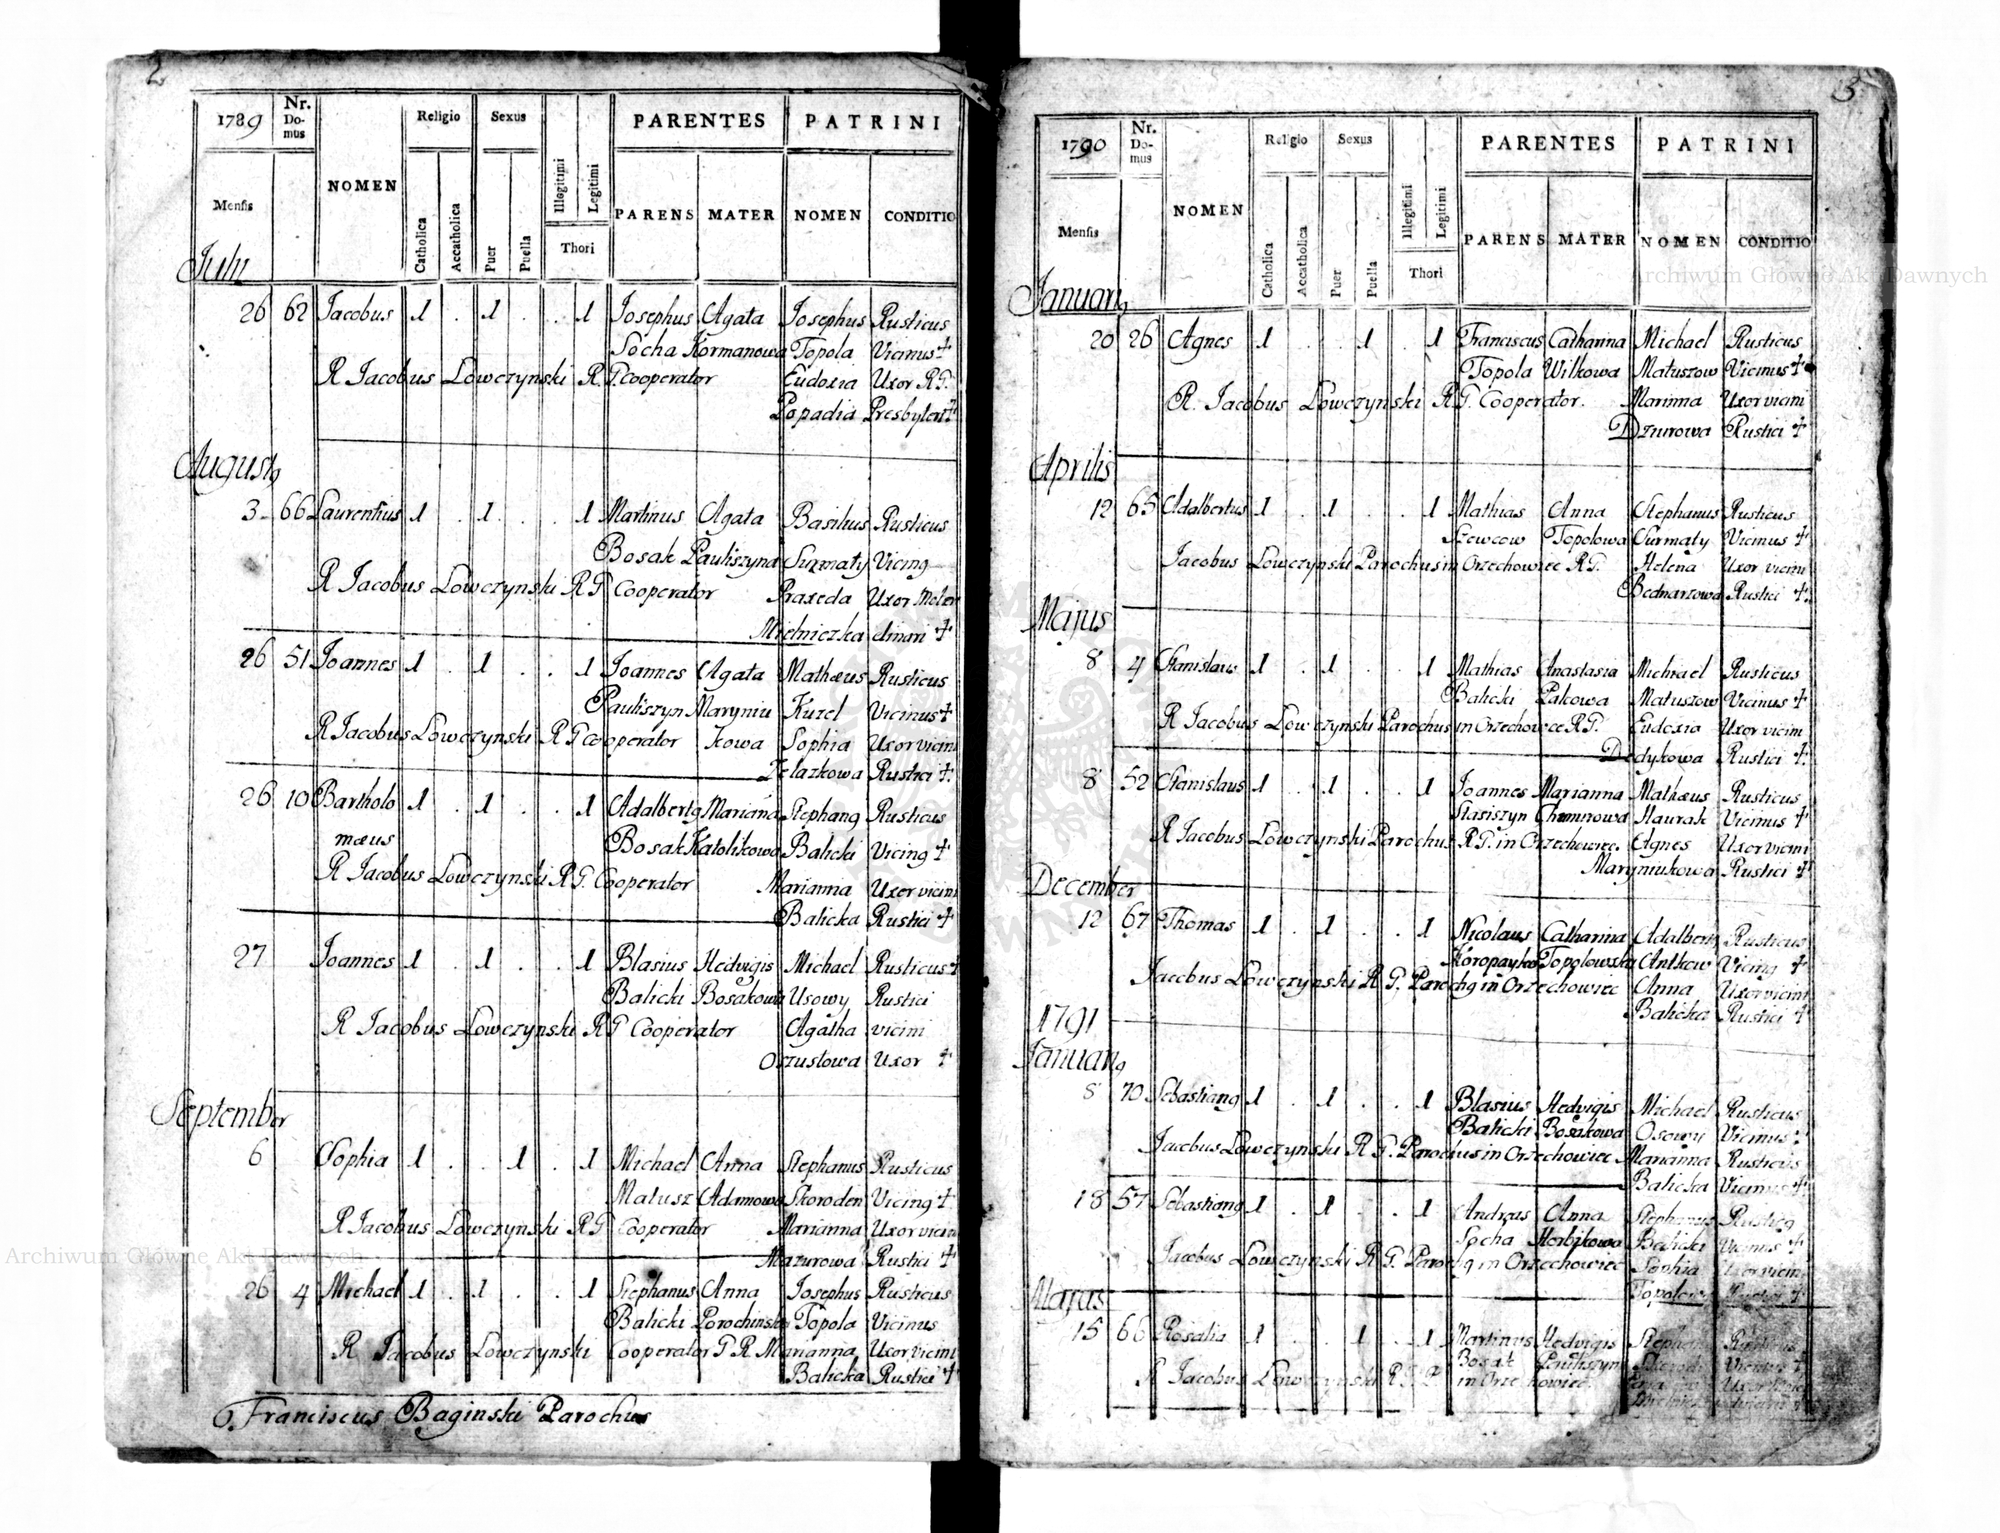 2
1789
Nr. Domus
NOMEN
Religio
Sexus
PARENTES
PATRINI
Mensis
Catholica
Accatholica
Puer
Puella
Illegitimi
Legitimi
Thori
PARENS MATER NOMEN CONDITIO
Julii
26 62 Jacobus 1 . 1 . . 1 Josephus Agata Josephus Rusticus
Socha Kormanowa Topola Vicinus +
R Jacobus Lowczynski R. G. Cooperator Eudoxia Uxor R G.
Popadia Presbyteri +
Augusti
3 66 Laurentius 1 . 1 . . 1 Martinus Agata Basilius Rusticus
Bosak Pauliszyna Surmaty Vicing
R Jacobus Lowczynski R G Cooperator Praxeda Uxor Molen
Mielniczka dinari +
26 51 Joannes 1 . 1 . . 1 Joannes Agata Mathæus Rusticus
Pauliszyn Maryniu Kuzel Vicinus +
R Jacobus Lowczynski R G Cooperator kowa Sophia Uxor vicini
Zelazkowa Rustici +
26 10 Bartholo 1 . 1 . . 1 Adalbertg Mariana Stephang Rusticus
mæus Bosak Katolikowa Balicki Vicing +
R Jacobus Lowczynski R G. Cooperator Marianna Uxor vicini
Balicka Rustici +
27 Joannes 1 . 1 . . 1 Blasius Hedvigis Michael Rusticus +
Balicki Bosakowa Usowy Rustici
R Jacobus Lowczynski R G Cooperator Agatha vicini
Orzustowa Uxor +
September
6 Sophia 1 . . 1 . 1 Michael Anna Stephanus Rusticus
Matusz Adamowa Skoroden Vicing +
R Jacobus Lowczynski R G Cooperator Marianna Uxor vicini
Mazurowa Rustici +
26 4 Michael 1 . 1 . . 1 Stephanus Anna Josephus Rusticus
Balicki Porochinska Topola Vicinus
R Jacobus Lowczynski Cooperator G R Marianna Uxor vicini
Balicka Rustici +
Franciscus Baginski Parochus
3
1790
Nr. Domus
NOMEN
Religio
Sexus
PARENTES
PATRINI
Mensis
Catholica
Accatholica
Puer
Puella
Illegitimi
Legitimi
Thori
PARENS MATER NOMEN CONDITIO
Januarg
20 26 Agnes 1 . . 1 . 1 Franciscus Catharina Michael Rusticus
Topola Wilkowa Matuszow Vicinus +
R. Jacobus Lowczynski R G. Cooperator. Marinna Uxor vicini
Dzurowa Rustici +
Aprilis
12 65 Adalbertus 1 . 1 . . 1 Mathias Anna Stephanus Rusticus
Szewcow Topolowa Surmaty Vicinus +
Jacobus Lowczynski Parochus in Orzechowiec R G. Helena Uxor vicini
Bednarzowa Rustici +
Majus
8 4 Stanislaus 1 . 1 . . 1 Mathias Anastasia Michael Rusticus
Balicki Pakowa Matuszow Vicinus +
R Jacobus Lowczynski Parochus in Orzechowce R G. Eudoxia Uxor vicini
Dedykowa Rustici +
8 52 Stanislaus 1 . 1 . . 1 Joannes Marianna Mathæus Rusticus
Stasiszyn Chomnowa Haurak Vicinus +
R Jacobus Lowczynski Parochus R G. in Orzechowiec. Agnes Uxor vicini
Maryniukowa Rustici +
December
12 67 Thomas 1 . 1 . . 1 Nicolaus Catharina Adalbertg Rusticus
Topolowska Antkow Vicing +
Jacobus Lowczynski R G. Parochg in Orzechowiec Anna Uxor vicini
Balicka Rustici +
1791
Januarg
8 70 Sebastiang 1 . 1 . . 1 Blasius Hedvigis Michael Rusticus
Balicki Bosakowa Osowy Vicinus +
Jacobus Lowczynski R G. Parochus in Orzechowiec Marianna Rusticus
Balicka Vicinus +
18 57 Sebastiang 1 . 1 . . 1 Andreas Anna Stephanus Rusticg
Socha Horbikowa Balicki Vicinus +
Jacobus Lowczynski R G. Parochg in Orzechowiec Sophia Uxor vicini
Majus
15 66 Rosalia 1 . . 1 . 1 Martinus Hedvigis
Bosak Pauliszyn
R Jacobus Lowczynski R G. P in Orzechowiec.
Archiwum Główne Akt Dawnych
Archiwum Główne Akt Dawnych